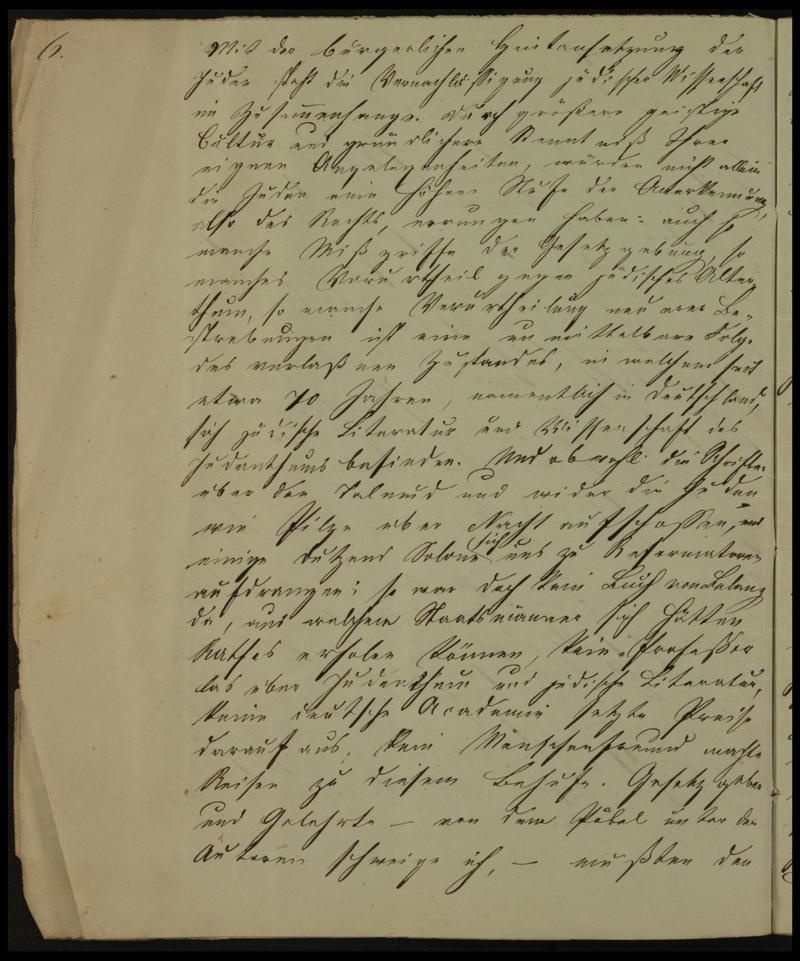 6.
Mit der bürgerlichen Hintansetzung der
Juden steht die Vernachlässigung jüdischer Wissenschaft
im Zusammenhange. Durch größere geistige
Cultur und gründlichere Kenntniß ihrer
eignen Angelegenheiten, würden nicht allein
die Juden eine höhere Stufe der Anerkennung,
also des Rechts, errungen haben: auch so
manche Mißgriffe der Gesetzgebung, so
manches Vorurtheil gegen jüdisches Alter-
thum, so manche Verurtheilung neuerer Be-
strebungen ist eine unmittelbare Folge
des verlaßnen Zustandes, in welchem seit
etwa 70 Jahren, namentlich in Deutschland,
sich jüdische Literatur und Wissenschaft des
Judenthums befinden. Und obwohl die Schriften
über den Talmud und wider die Juden
wie Pilze über Nacht aufschossen, und
einige Dutzend Solone sich uns zu Reformatoren
aufdrangen: so war doch kein Buch von Belang
da, aus welchem Staatsmänner sich hätten
Rathes erholen können, kein Professor
las über Judenthum und jüdische Literatur,
keine deutsche Academie setzte Preise
darauf aus, kein Menschenfreund machte
Reisen zu diesem Behufe. Gesetzgeber
und Gelehrte — von dem Pöbel unter den
Autoren schweige ich, — mußten den